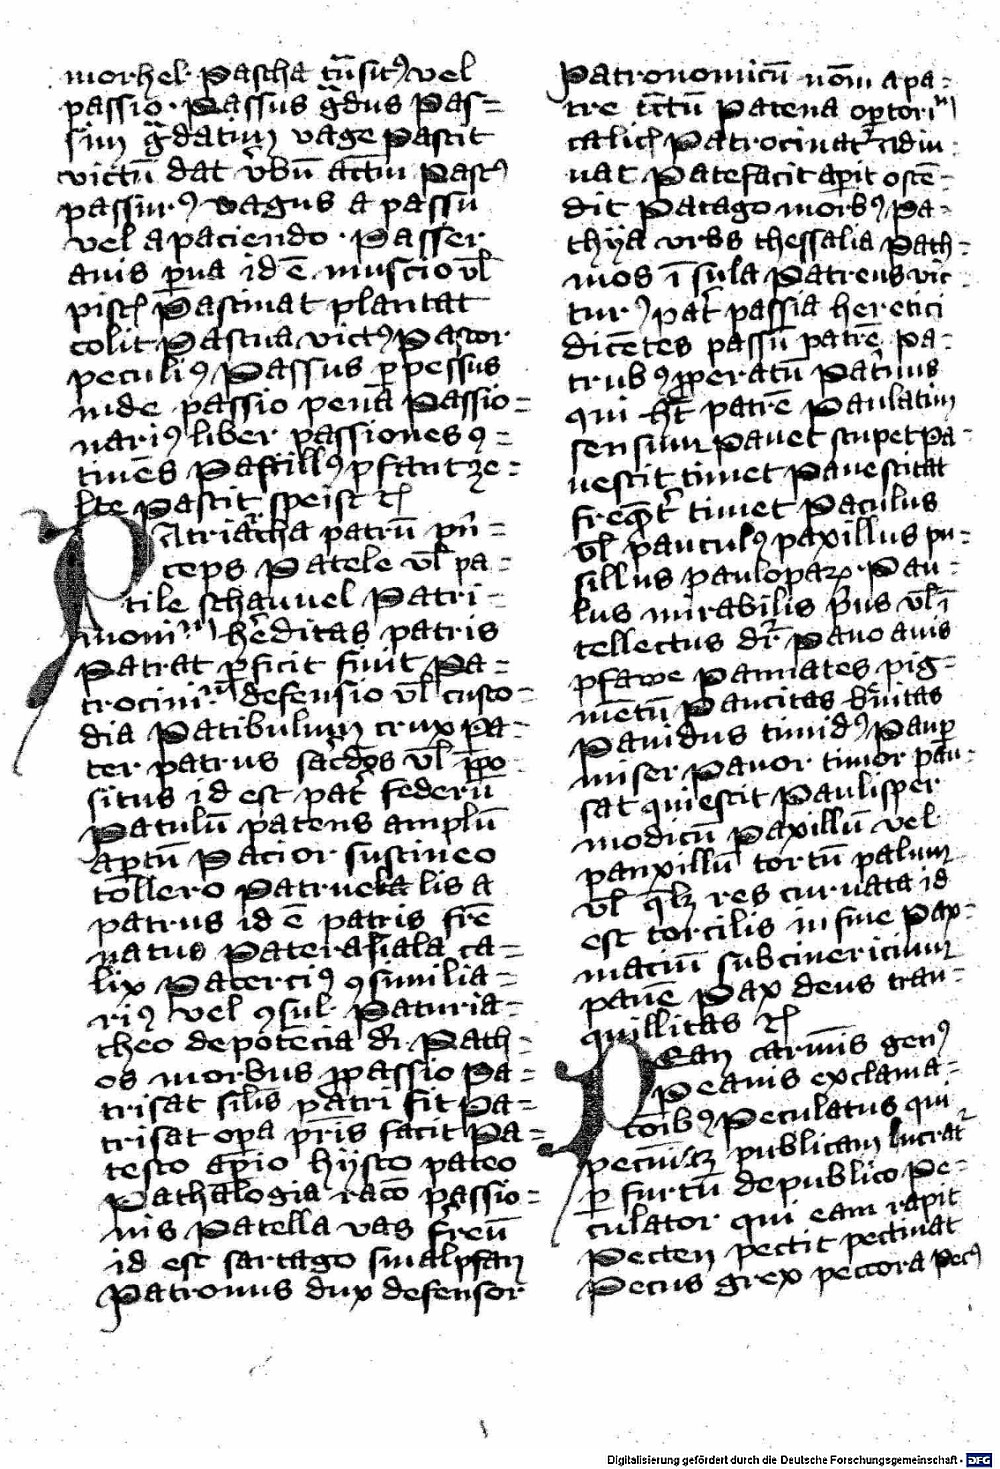 morhel Pascha tn̄sitꝰ vel
passio · Passus gͣdus Pas=
sim gͣdatim vage Pascit
victū dat v̓bū actm̄ Pastꝰ
passiu᷒ꝰ vagus a passu
vel a paciendo · Passer
auis ꝑua id ē muscio vl̄
pisc̄ Pastinat plantat
colit Pascua victꝰ Pastor
peculiꝰ Passus ꝑpessus
inde passio pena Passio=
nariꝰ liber passiones ꝯ=
tinēs Pastillꝰ pfantze=
lte Pascit speist rc̄
PAtriar̄cha patrū prī=
ceps Patele vl̄ pa=
tile schauuel Patri=
moniū he̓ditas patris
Patrat ꝑficit finit Pa=
trociniū defensio vl̄ custo=
dia Patibulum crux Pa=
ter patrus sac̓dos vl̄ p̄po
situs id est pat̓ federū
Patulū patens amplū
aꝑtū Pacior sustineo
tollero Patruelis a
patrus id ē patris fr̄e
natus Patera fiala ca=
lix Paterciꝰ ꝯsimilia=
riꝰ vel ꝯsul Paturia=
theo de potēcia dr̄ Path=
os morbus ꝓpassio Pa=
trisat silīs patri fit Pa=
trisat oꝑa pr̄is facit Pa=
tesco aꝑio hysco pateo
Pathalogia racō passio=
nis Patella vas ferreū
id est sartago smalpfan
Patronus dux defensor
Patronomicū nom̄ a pa=
tre tc̄tū Patena oꝑtoriū
calic̄ Patrocinat᷑ adiu=
uat Patefacit aꝑit oste=
dit Patago morbꝰ Pa=
thya vrbs thessalia Path=
mos īsula Patreus vic̄
turꝰ pat̓ passia heretici
dicētes passū patrē Pa=
trubꝰ ꝓꝑeratū Pat̓nus
qui hꝫ patrē Paulatim
sensim Pauet stupet Pa=
uescit timet Pauescitat
freqn̄t̓ timet Paculus
vl̄ pauculꝰ paxillus pu=
sillus paulopaꝝ · Pau=
lus mirabilis pͥus vl̄ ī
tellectus dr̄ Pauo auis
pfawe Pannates pig=
mētū Paucitas breuitas
Pauidus timidꝰ Pauꝑ
miser Pauor timor Pau=
sat quiescit Paulisper
modicū Paxillū vel
pauxillū tortū palum
vl̄ qͥlꝫ res curuata id
est torcilis in fine Pax=
maciū subcinericium
panē Pax deus tran=
quillitas rc̄
PEan carmīs genꝰ
Peanis exclama=
coibꝰ Peculatus qui
pecuniā publicam lucrat᷑
ꝑ furtū de publico Pe=
culator qui eam rapit
Pecten pectit pectinat
Pecus grex peccora Pecꝰ
Digitalisierung gefördert durch die Deutsche Forschungsgemeinschaft - DFG